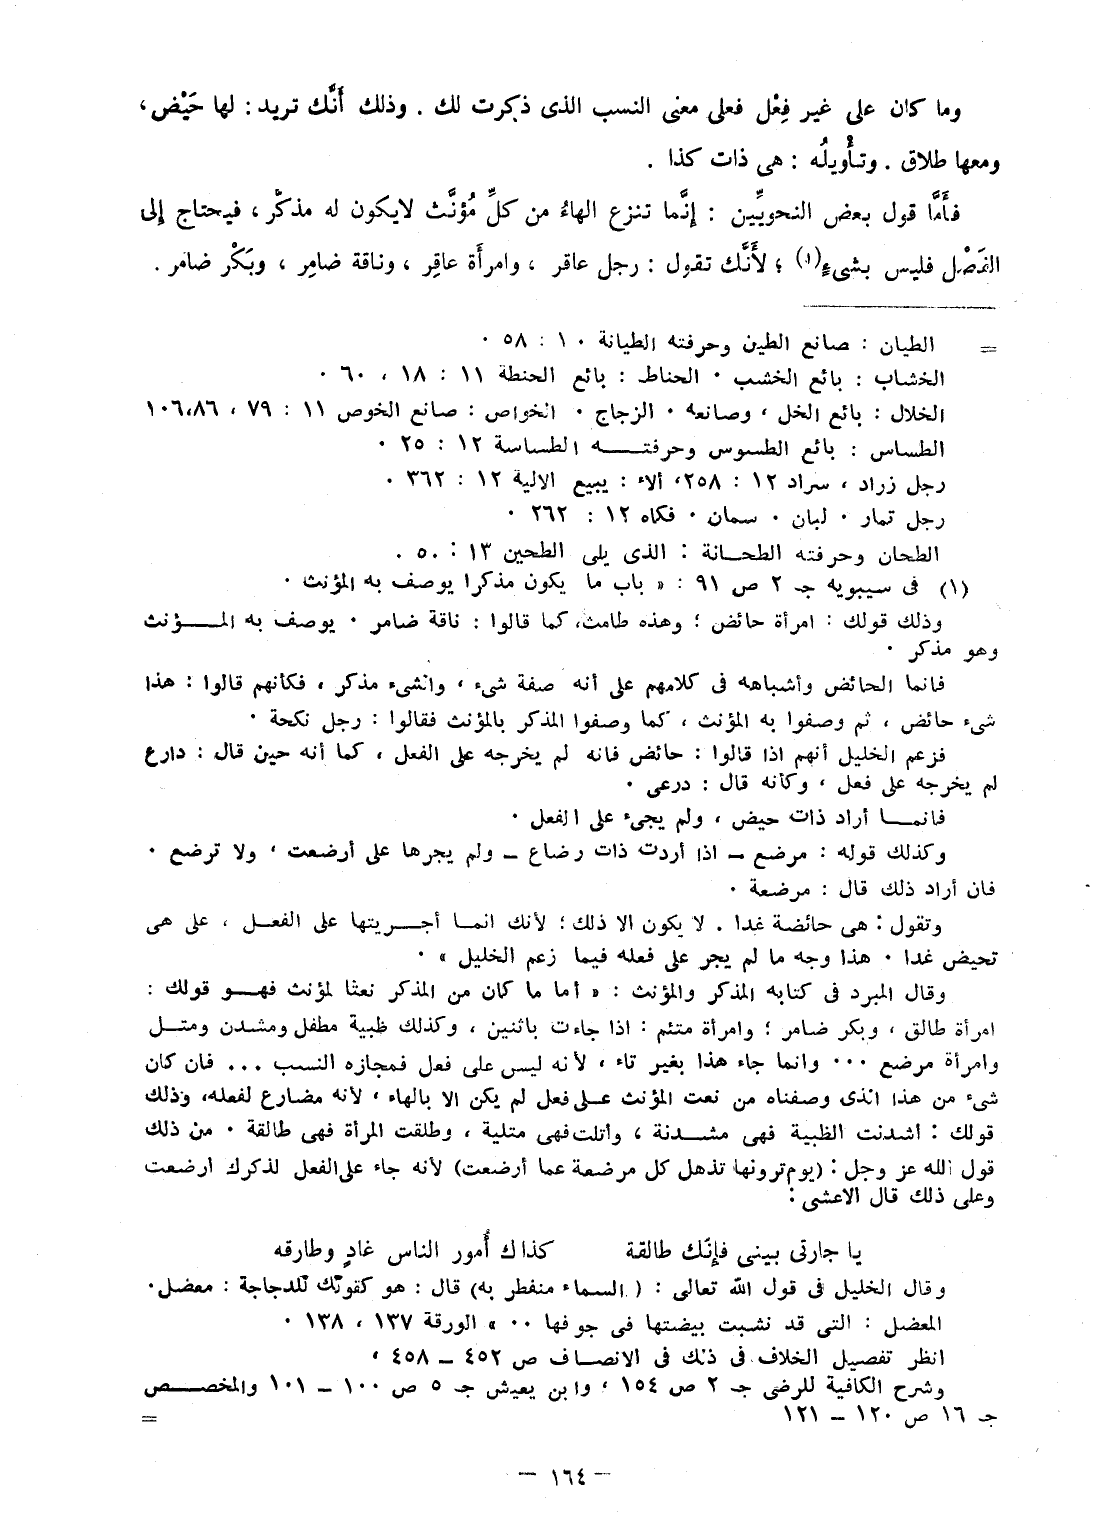 وما كان على غير فِعْل فعلى معنى النسب الذى ذكرت لك . وذلك أَنَّك تريد : لها حَيْض ،
ومعها طلاق . وتأْويلُه : هى ذات كذا .
فأَمَّا قول بعض النحويِّين : إِنَّما تنزع الهاءُ من كلِّ مُؤنَّث لايكون له مذكَّر ، فيحتاج إلى
الفَصْل فليس بشىءٍ(١) ؛ لأَنَّك تقول : رجل عاقر ، وامرأَة عاقِر ، وناقة ضامِر ، وبَكْر ضامر .
= الطيان : صانع الطين وحرفته الطيانة ١٠ : ٥٨ ٠
الخشاب : بائع الخشب ٠ الحناط : بائع الحنطة ١١ : ١٨ ، ٦٠ ٠
الخلال : بائع الخل ، وصانعه ٠ الزجاج ٠ الخواص : صانع الخوص ١١ : ٧٩ ، ١٠٦،٨٦
الطساس : بائع الطسوس وحرفتــه الطساسة ١٢ : ٢٥ ٠
رجل زراد ، سراد ١٢ : ٢٥٨، ألاء : يبيع الالية ١٢ : ٣٦٢ ٠
رجل تمار ٠ لبان ٠ سمان ٠ فكاه ١٢ : ٢٦٢ ٠
الطحان وحرفته الطحــانة : الذى يلى الطحين ١٣ : ٥٠ ٠
(١) فى سيبويه جـ ٢ ص ٩١ : « باب ما يكون مذكرا يوصف به المؤنث ٠
وذلك قولك : امرأة حائض ؛ وهذه طامث، كما قالوا : ناقة ضامر ٠ يوصف به المــؤنث
وهو مذكر ٠
فانما الحائض وأشباهه فى كلامهم على أنه صفة شىء ، والشىء مذكر ، فكأنهم قالوا : هذا
شىء حائض ، ثم وصفوا به المؤنث ، كما وصفوا المذكر بالمؤنث فقالوا : رجل نكحة ٠
فزعم الخليل أنهم اذا قالوا : حائض فانه لم يخرجه على الفعل ، كما أنه حين قال : دارع
لم يخرجه على فعل ، وكأنه قال : درعى ٠
فانمــا أراد ذات حيض ، ولم يجىء على الفعل ٠
وكذلك قوله : مرضع – اذا أردت ذات رضاع – ولم يجرها على أرضعت ، ولا ترضع ٠
فان أراد ذلك قال : مرضعة ٠
وتقول : هى حائضة غدا . لا يكون الا ذلك ؛ لأنك انمــا أجــريتها على الفعــل ، على هى
تحيض غدا ٠ هذا وجه ما لم يجر على فعله فيما زعم الخليل » ٠
وقال المبرد فى كتابه المذكر والمؤنث : « أما ما كان من المذكر نعتا لمؤنث فهــو قولك :
امرأة طالق ، وبكر ضامر ؛ وامرأة متئم : اذا جاءت باثنين ، وكذلك ظبية مطفل ومشدن ومتــل
وامرأة مرضع ٠٠٠ وانما جاء هذا بغير تاء ، لأنه ليس على فعل فمجازه النسب ... فان كان
شىء من هذا الذى وصفناه من نعت المؤنث على فعل لم يكن الا بالهاء ، لأنه مضارع لفعله، وذلك
قولك : أشدنت الظبية فهى مشــدنة ، وأتلت فهى متلية ، وطلقت المرأة فهى طالقة ٠ من ذلك
قول الله عز وجل : (يوم ترونها تذهل كل مرضعة عما أرضعت) لأنه جاء على الفعل لذكرك أرضعت
وعلى ذلك قال الاعشى :
يا جارتى بينى فإنّك طالقة كذاك أُمور الناس غادٍ وطارقه
وقال الخليل فى قول الله تعالى : ( السماء منفطر به) قال : هو كقولك للدجاجة : معضل٠
المعضل : التى قد نشبت بيضتها فى جوفها ٠٠ » الورقة ١٣٧ ، ١٣٨ ٠
انظر تفصيل الخلاف فى ذلك فى الانصــاف ص ٤٥٢ – ٤٥٨ ،
وشرح الكافية للرضى جـ ٢ ص ١٥٤ ، وابن يعيش جـ ٥ ص ١٠٠ – ١٠١ والمخصــص
جـ ١٦ ص ١٢٠ – ١٢١ =
– ١٦٤ –